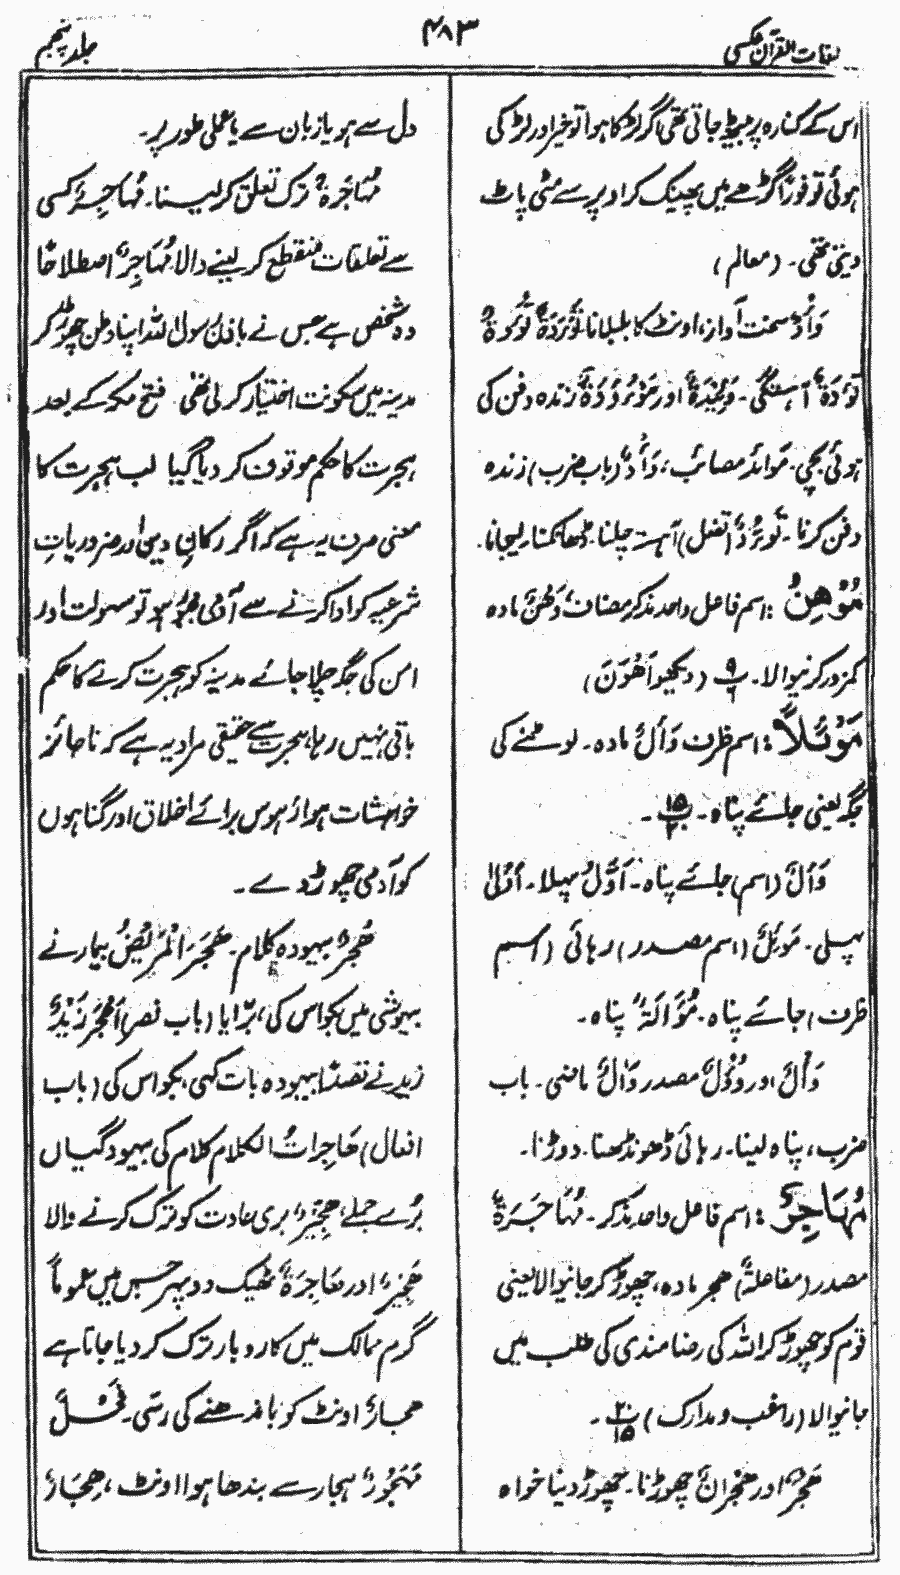 لغات القرآن عکسی
۴۸۳
جلد پنجم
اس کے کنارہ پر بیٹھ جاتی تھی اگر لڑکا ہوا تو خیر اور لڑکی
ہوئی تو فوراً گڑھے میں پھینک کر اوپر سے مٹی پاٹ
دیتی تھی۔ (معالم)
وَأْدٌ سخت آواز، اونٹ کا بلبلانا تُؤَدَةٌ تُؤْدَةٌ
تَوْءَدَةٌ آہستگی۔ وَئِیْدَةٌ اور مَوْءُوْدَةٌ زندہ دفن کی
ہوئی بچی۔ مَوَائِدُ مصائب، وَأَدَ (باب ضرب) زندہ
دفن کرنا۔ تَوَؤُّدٌ (تفعل) آہستہ چلنا۔ ڈھانکنا۔ لیجانا۔
مُوْهِنُ : اسم فاعل واحد مذکر مضاف، وَهْنٌ مادہ
کمزور کرنیوالا۔ پ ۹ (دیکھو أَهْوَنَ)
مَوْئِلاً : اسم ظرف وَأْلٌ مادہ۔ لوٹنے کی
جگہ یعنی جائے پناہ۔ پ ۱۵ ۔
وَأْلٌ (اسم) جائے پناہ۔ أَوَّلُ پہلا۔ أُوْلٰی
پہلی۔ مَوْئِلٌ (اسم مصدر) رہائی (اسم
ظرف) جائے پناہ۔ مُؤَاءَلَةٌ پناہ۔
وَأْلٌ اور وُؤُوْلٌ مصدر وَأَلَ ماضی۔ باب
ضرب، پناہ لینا۔ رہائی ڈھونڈھنا۔ دوڑنا۔
مُهَاجِرٌ : اسم فاعل واحد مذکر۔ مُهَاجَرَةٌ
مصدر (مفاعلۃ) هجر مادہ، چھوڑ کر جانیوالا یعنی
قوم کو چھوڑ کر اللہ کی رضامندی کی طلب میں
جانیوالا (راغب و مدارک) پ ۲۰ ۱۵ ۔
هَجْرٌ اور هِجْرَانٌ چھوڑنا۔ چھوڑ دینا خواہ
دل سے ہو یا زبان سے یا عملی طور پر۔
مُهَاجَرَةٌ ترک تعلق کر لینا۔ مُهَاجِرٌ کسی
سے تعلقات منقطع کر لینے والا۔ مُهَاجِرٌ اصطلاحاً
وہ شخص ہے جس نے باذن رسول اللہ اپنا وطن چھوڑ کر
مدینہ میں سکونت اختیار کر لی تھی فتح مکہ کے بعد
ہجرت کا حکم موقوف کر دیا گیا اب ہجرت کا
معنی صرف یہ ہے کہ اگر ارکانِ دین اور ضروریاتِ
شرعیہ کو ادا کرنے سے آدمی مجبور ہو تو سہولت اور
امن کی جگہ چلا جائے مدینہ کو ہجرت کرنے کا حکم
باقی نہیں رہا، ہجرت سے حقیقی مراد یہ ہے کہ ناجائز
خواہشات ہوا و ہوس برائے اخلاق اور گناہوں
کو آدمی چھوڑ دے ۔
هُجْرٌ بیہودہ کلام۔ هَجَرَ الْمَرِیْضُ بیمار نے
بیہوشی میں بکواس کی، بڑّایا (باب نصر) أَهْجَرَ زَیْدٌ
زید نے قصداً بیہودہ بات کہی، بکواس کی (باب
افعال) هَاجِرَاتُ الکلام کلام کی بیہودگیاں
بُرے جملے، هِجِّیْرٌ بری عادت کو ترک کرنے والا
هَجِیْرٌ اور هَاجِرَةٌ ٹھیک دوپہر جس میں عموماً
گرم ممالک میں کاروبار ترک کر دیا جاتا ہے
هجارٌ اونٹ کو باندھنے کی رسّی۔ فَحْلٌ
مَهْجُوْرٌ ہجار سے بندھا ہوا اونٹ، هِجَارٌ